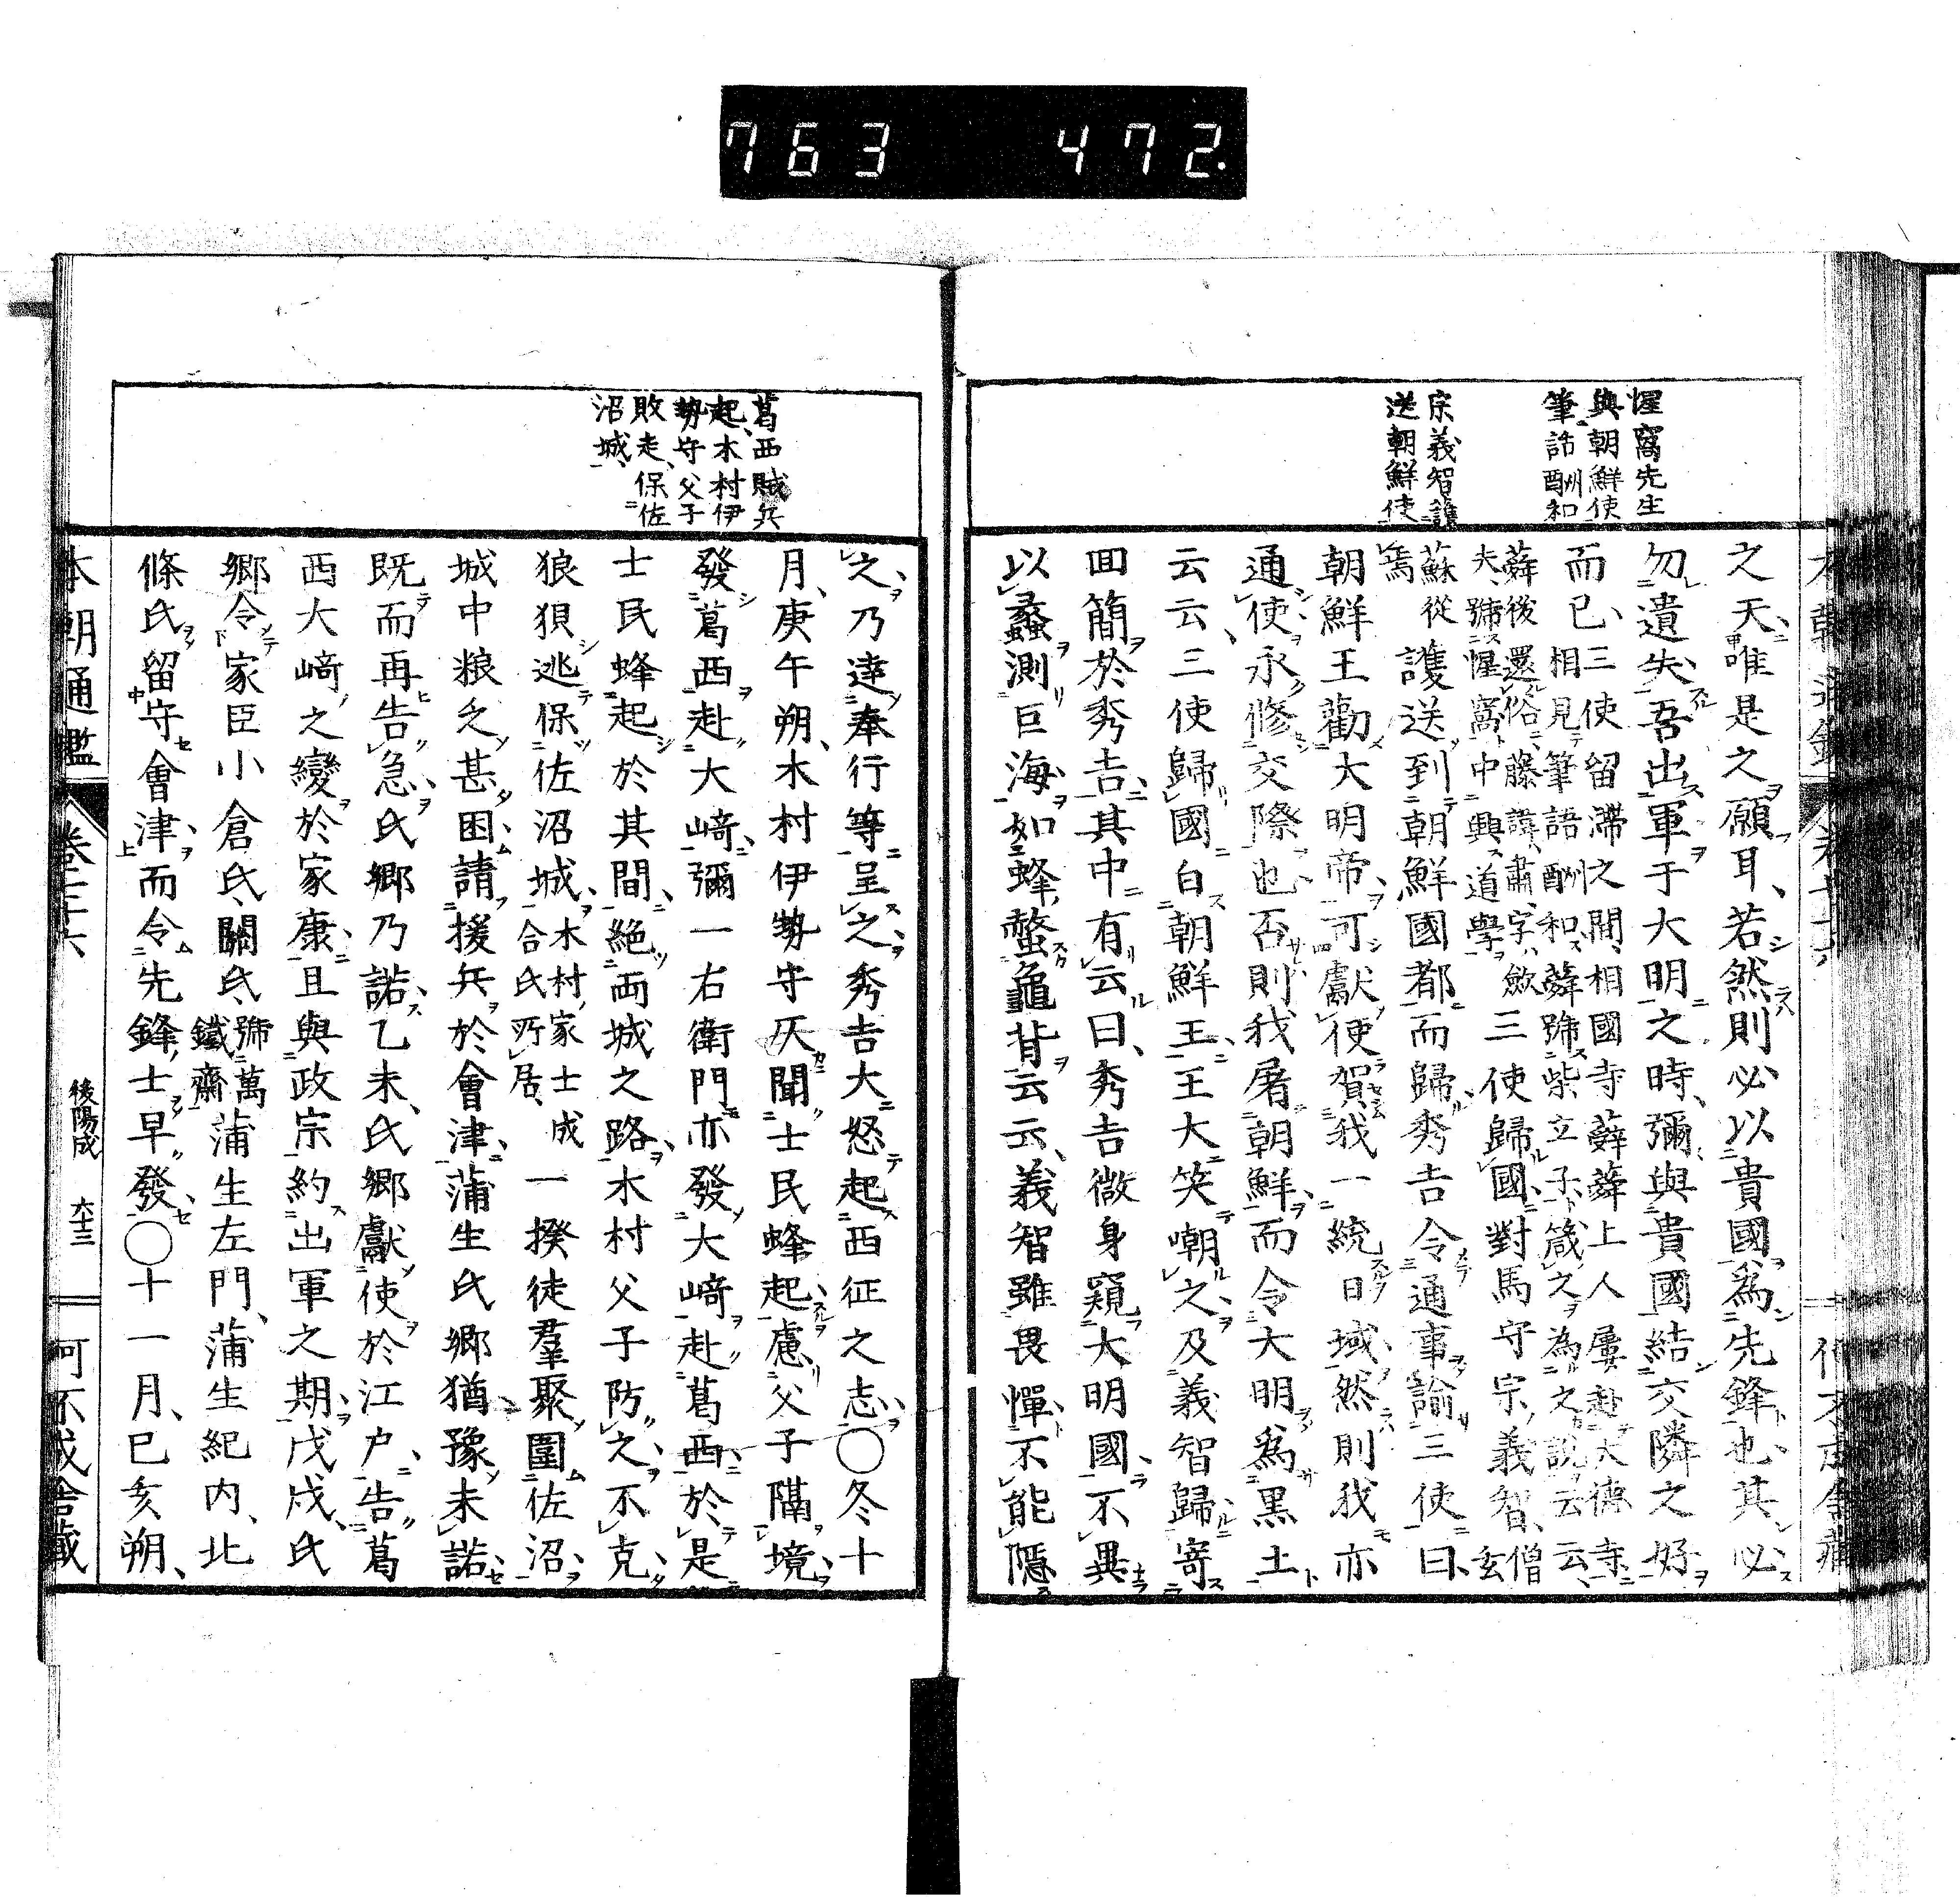 763 472
惺窩先生
與朝鮮使
筆語酬和
宗義智護
送朝鮮使
之天唯是之願耳、若然則必以貴國為先鋒也、其必
勿遺失、吾出軍于大明之時、彌與貴國結交隣之好
而已、三使留滯之間、相國寺蕣上人屢赴大德寺
相見筆語酬和、蕣號柴立子、箴之為之說云云、
蕣後還俗、藤講肅字、斂
夫、號惺窩、中興道學
三使歸國、對馬守宗義智、僧玄
蘇從護送到朝鮮國都而歸、秀吉令通事諭三使曰、
焉
朝鮮王勸大明帝、可獻使賀我一統日域、然則我亦
通使、永修交際也、否則我屠朝鮮、而令大明為黑土
云云、三使歸國白朝鮮王、王大笑嘲之、及義智歸寄
回簡於秀吉、其中有云曰、秀吉微身窺大明國、不異
以蠡測巨海、如蜂螫龜背云云、義智雖畏憚不能隱
葛西賊兵
起、木村伊
勢守父子
敗走、保佐
沼城、
之、乃達奉行等呈之、秀吉大怒起西征之志、〇冬十
月、庚午朔、木村伊勢守仄聞士民蜂起、慮父子隔境、
發葛西赴大﨑、彌一右衛門亦發大﨑赴葛西、於是
士民蜂起於其間、絕両城之路、木村父子防之、不克、
狼狽逃保佐沼城、
木村家士成
合氏所居、
一揆徒羣聚圍佐沼、
城中粮乏甚困、請援兵於會津、蒲生氏郷猶豫未諾、
既而再告急、氏郷乃諾、乙未、氏郷獻使於江戸、告葛
西大﨑之變於家康、且與政宗約出軍之期、戊戌、氏
郷令家臣小倉氏、關氏、
號萬
鐵齋
蒲生左門、蒲生紀内、北
條氏留守會津、而令先鋒士早發、〇十一月、己亥朔、
本朝通鑑
卷三十六
後陽成
六十三
可不成舍藏